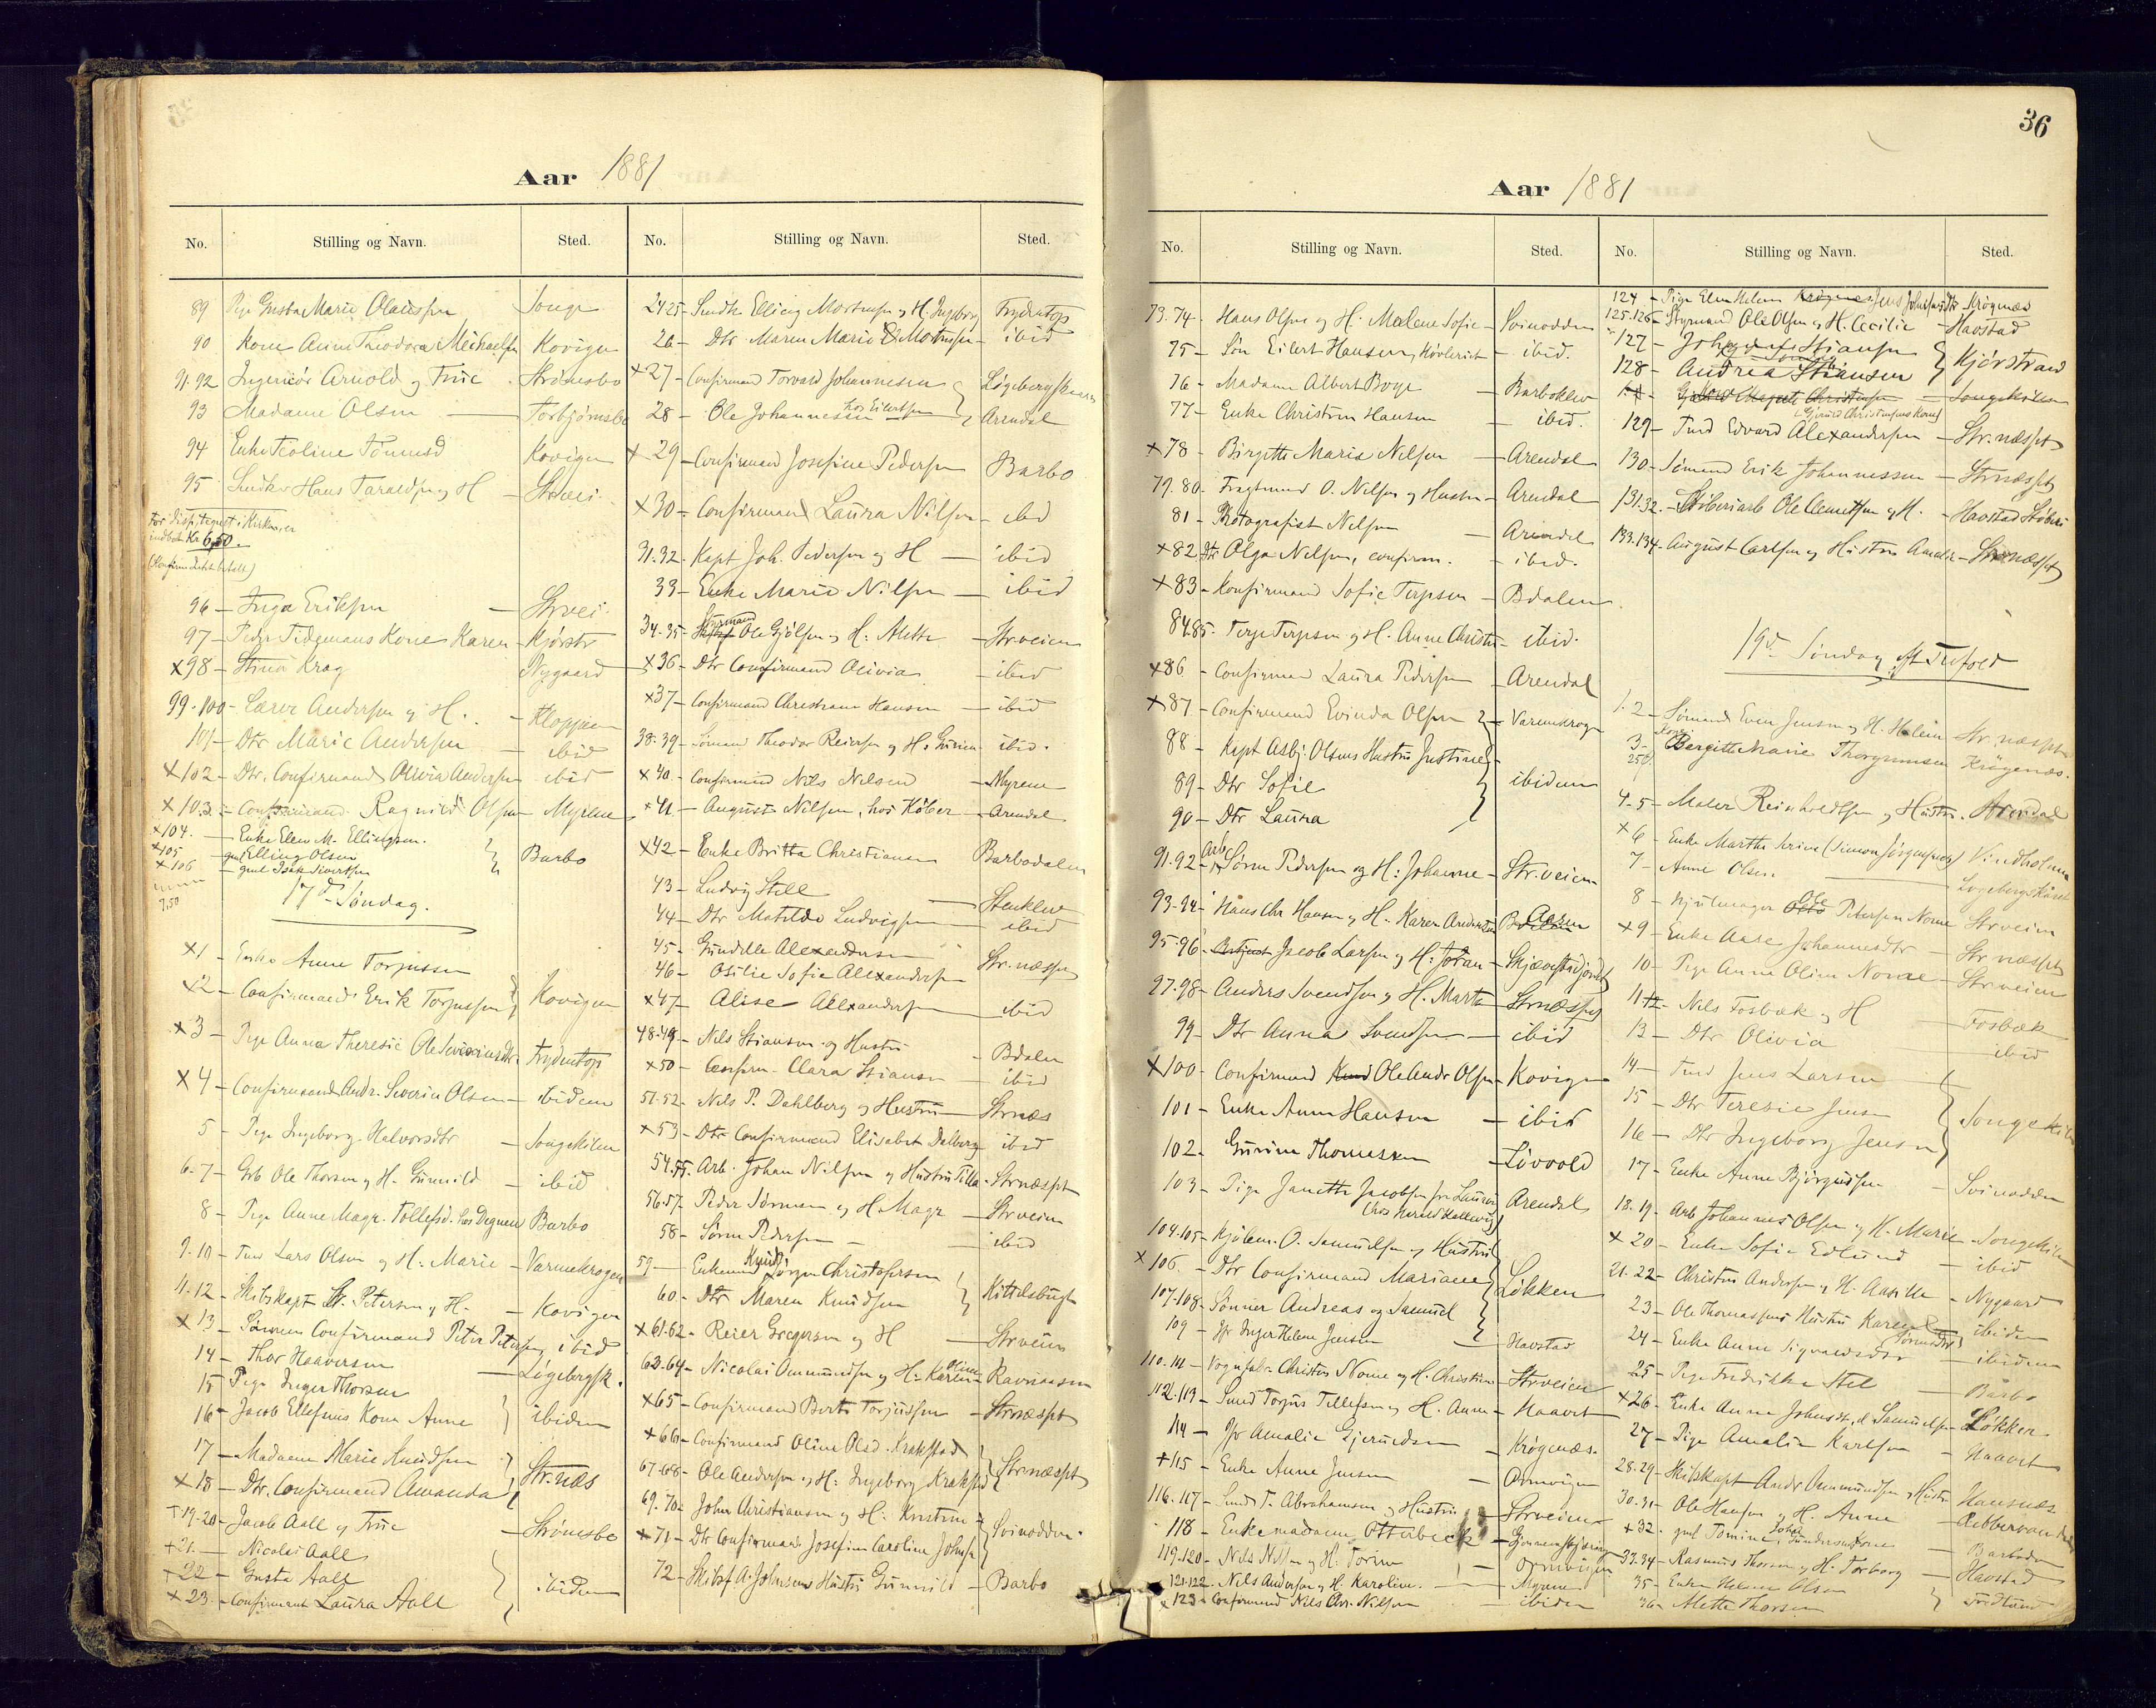 Aar 1881
No. Stilling og Navn. Sted. No. Stilling og Navn. Sted.
89 Pige Gusta Marie Olausen Songe
90 Kone Anne Theodora Michaelsen Kovigen
91.92 Ingeniør Arnold og Frue Strømsbo
93 Madame Olsen — Torbjørnsbo
94 Enke Teoline Tønnesd Kovigen
95 Smdkr Hans Taraldsen og H – Strvei
indbet Kr 6,50.
96 – Inga Eriksen – Strvei
97 – Peder Tidemans Kone Karen – Kjørstr
×98 – Stina Krag Nygaard
99-100 – Lærer Andersen og H. – Kloppen
101 – Dtr Marie Andersen – ibid
×102 – Dtr. Confirmand Olivia Andersen ibid
×103 – Confirmand Ragnild Olsen – Myrene
×104. – Enke Ellen M. Ellingsen.
×105 – gml Elling Olsen } Barbo
×106 – gml Isak Sivertsen
7,50
17de Søndag.
×1 – Enke Anne Torjussen
×2 – Confirmand Erik Torjussen } Kovigen
×3 – Pige Anna Theresie Ole Severinsdtr. Frydentop
×4 – Confirmand Andr. Severin Olsen – ibidem
5 – Pige Ingeborg Halvorsdtr – Songekilen
6-7 – Grb Ole Thorsen og H. Gunnild – ibid
8 – Pige Anne Magr. Tollefsd. hos Degnen Barbo
9.10 – Tmd Lars Olsen og H: Marie – Varmekrogen
11.12 – Skibskapt Petersen og H. – Kovigen
×13 – Sønnen Confirmand Peter Petersen ibid
14 – Thor Haaversen – Løgebergsk.
15 Pige Inger Thorsen
16 – Jacob Ellefsens Kone Anne } ibidem
17 – Madame Marie Knudsen
×18 – Dtr. Confirmand Amanda } Str.næs
+19-20 – Jacob Aall og Frue – Strømsbo
+21. – Nicolai Aall
+22 – Gusta Aall } ibidem
×23 – Confirmant Laura Aall
24 25 – Smdk Elling Mortensen og H. Ingborg Frydentop
26 – Dtr Maren Marie Mortensen – ibid
×27 – Confirmand Torvald Johannesen } Løgebergskaaen
28 – Ole Johannesen hos Eilertsen Arendal
×29 – Confirmand Josefine Pedersen Barbo
×30 – Confirmand Laura Nilsen – ibid
31.32 – Kapt Joh. Pedersen og H — ibid
33 – Enke Marie Nilsen – ibid
34.35 – Styrmand Ole Gjølsen og H: Alette – Str.veien
×36 – Dtr Confirmand Olivia – ibid
×37 – Confirmand Christiane Hansen – ibid
38.39 – Sømand Theodor Reiersen og H: Gurine ibid.
×40 – Confirmand Nils Nilsen – Myrene
×41 – August Nilsen, hos Køber – Arendal
×42 – Enke Britta Christiansen Barbodalen
43 – Ludvig Stell – Stenklev
44 – Dtr Matilde Ludvigsen – ibid
45 – Gunelle Alexandersen
46 – Osilie Sofie Alexandersen Str.næsset
×47 – Alise Alexandersen ibid
48-49 – Nils Stiansen og Hustru – Bdalen
×50 – Confirm – Clara Stiansen – ibid
51-52 – Nils P. Dahlberg og Hustru – Strnæs
×53 – Dtr Confirmand Elisabet Dalberg – ibid
54.55. Arb. Johan Nilsen og Hustru Tilla – Strnæsset
56-57 – Peder Sørensen og H. Magr – Strveien
58 – Søren Pedersen – ibid
59 – Enkemand Knud Jørgen Christofersen } Kittelsbugt
60 – Dtr Maren Knudsen
×61.62 – Reier Gregersen og H – Strveien
63-64 – Nicolai Ommundsen og H: Karen Oline – Ravnaasen
×65 – Confirmand Berte Torjusdsen – Strnæsset
×66 – Confirmand Oline Olsd. Krakstad
67.68 – Ole Andersen og H: Ingeborg Krakstad } Strnæsset
69.70 – John Christiansen og H: Kristine – } Svinodden.
×71 – Dtr Confirmand Josefine Caroline Johnsen
72 – Skibsf A. Johnsens Hustru Gunnild – Barbo
36
Aar 1881
No. Stilling og Navn. Sted. No. Stilling og Navn. Sted.
73.74 – Hans Olsen og H. Malene Sofie – Svinodden
75 – Søn Eilert Hansen, Høvlerist – ibid.
76 – Madame Albert Boye – Barboklev
77 – Enke Christine Hansen – ibid.
×78 – Birgitte Maria Nilsen – Arendal
79.80 – Fragtmand O. Nilsen og Hustru – Arendal
81 – Photografist Nilsen – Arendal
×82 Dtr Olga Nilsen, confirm. – ibid.
×83 – Konfirmand Sofie Terjesen – Bdalen
84.85. Terje Terjesen og H. Anne Christi – ibid.
×86 – Confirman Laura Pedersen – Arendal
×87 – Confirmand Evinda Olsen } – Varmekrogn
88 – Kapt Asbj. Olsens Hustru Justine
89 – Dtr Sofie } ibidem
90 – Dtr Laura
91.92 – Arb. Søren Pedersen og H: Johanne – Str.veien
93-94 – Hans Chr Hansen og H. Karen Andrea
95-96 – Jacob Larsen og H: Johan – Skjævestadjordet
97-98 – Anders Svendsen og H. Marte – Strnæsset
99 – Dtr Anna Svendsen – ibid
×100 – Confirmand Ole Andr Olsen – Kovigen
101 – Enke Anne Hansen – ibid
102 – Gurine Thomesen – Løvvold
103 – Pige Janette Jacobsen fra Laurvig Arendal
104-105 – Kjølem. O. Samuelsen og Hustru
×106. – Dtr Confirmand Mariane } Løkken
107-108 – Sønner Andreas og Samuel
109 – Jfr Inger Helene Jensen – Havstad
110.111 – Vognfab. Christen Nome og H. Christine – Strveien
112-113 – Smed Torjus Tellefsen og H. Anne – Haavet
114 – Jfr Amalie Gjerudsen – Krøgenæs.
+115 – Enke Anne Jensen – Ormvigen
116.117 – Smed T. Abrahamsen og Hustru – Strveien
118 – Enkemadame Otterbeck –
119-120 – Nils Nilsen og H: Torine – Ormvigen
121.122 – Nils Andersen og H. Karoline. – Myrene
×123 – Confirmand Nils Chr. Nilsen – ibidem
124 – Pige Elen Helene Jens Johnsensdtr Krøgenæs
125.126 – Styrmand Ole Olsen og H. Cecilie – Havstad
127 – Stiansen
128 – Andrea Stiansen } Kjørstrand
Songekilen
129 – Tmd Edvard Alexandersen – Str.næsset
130 – Sømand Erik Johannessen – Strnæsset
131.32. – Støberiarb Ole Clemetsen og H. – Havstad Støberi
133.134 – August Carlsen og Hustru Amalie – Strnæsset
19de Søndag eft Trefold
1.2 – Sømand Even Jensen og H. Helene Str.næsset
3 – Bergitte Marie Thorgrimsen Krøgenæs.
4-5 – Maler Reinholdtsen og Hustru. Arendal
×6 – Enke Marthe Serine (Simon Jørgensens) Vindholmen
7 – Anne Olsen – Løgebergskaaet
8 – Hjulmager Ole Petersen Nome Strveien
×9 – Enke Aase Johannesdtr – Str næsset
10 – Pige Anne Oline Nome – Strveien
11-12 – Nils Fosbæk og H – Fosbæk
13 – Dtr Olivia – ibid
14 – Tmd Jens Larsen
15 – Dtr Teresie Jensen } Songekilen
16 – Dtr Ingeborg Jensen
17 – Enke Anne Bjørgudsen – Svinodden
18.19 – Arb Johannes Olsen og H. Marie – Songekilen
×20 – Enke Sofie Edlund – ibid
21-22 – Christen Andersen og H. – Nygaard
23 – Ole Thomassens Hustru Karen – ibidem
24 – Enke Anne Sigvaldsdtr – ibidem
25 – Pige Fredrikke Stel – Barbo
×26 – Enke Anne Johnsdt. d. Samuelsen – Løkken
27 – Pige Amalie Karlsen – Haavet
28.29 – Skibskapt Andr Ommundsen og Hustr – Hansnæs.
30.31 – Ole Hansen og H. Anne –
+32. – gml Tomine Gundersens Kone – Barbodn
33.34 – Rasmus Thorsen og H. Torborg – Havstad
35 – Enke Helene Olsen
36 – Alette Thorsen